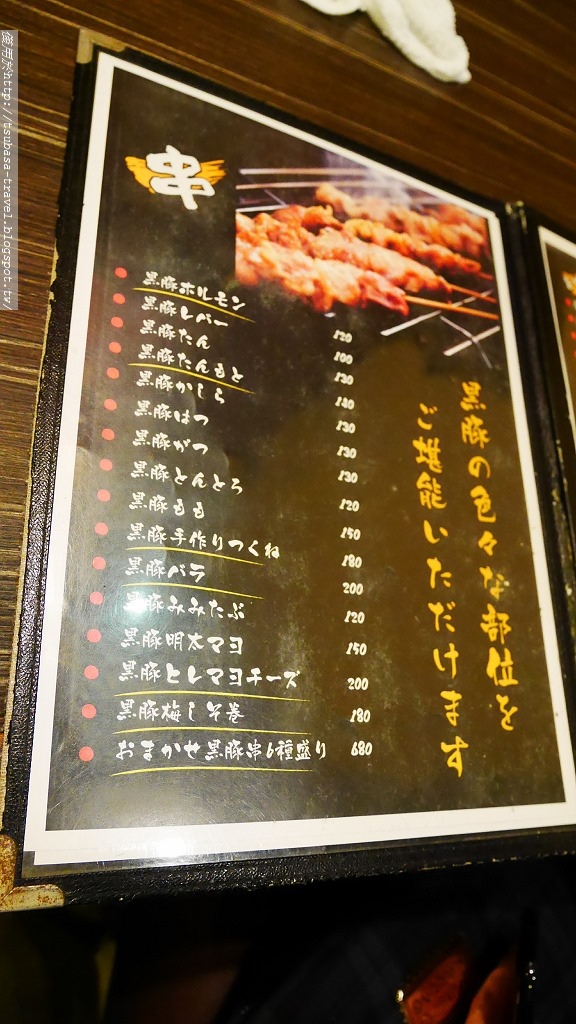 僅用於http://tsubasa-travel.blogspot.tw/
串
黒豚ホルモン 120
黒豚レバー 100
黒豚たん 130
黒豚たんもと 180
黒豚かしら 130
黒豚はつ 130
黒豚がつ 130
黒豚とんとろ 120
黒豚もも 150
黒豚手作りつくね 180
黒豚バラ 200
黒豚みみたぶ 120
黒豚明太マヨ 150
黒豚とレマヨチーズ 200
黒豚梅しそ巻 180
おまかせ黒豚串6種盛り 680
黒豚の色々な部位を
ご堪能いただけます